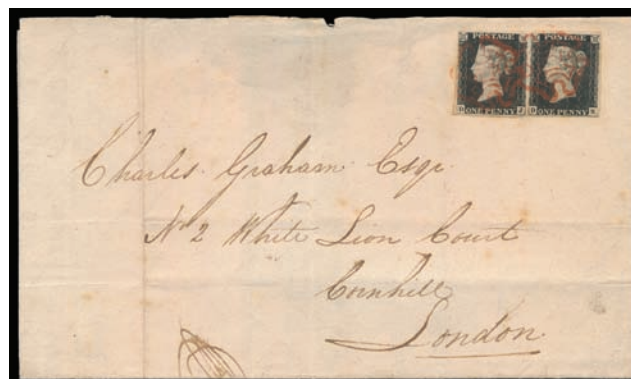 POSTAGE POSTAGE
ONE PENNY ONE PENNY
Charles Graham Esqr
No 2 White Lion Court
Cornhill
London